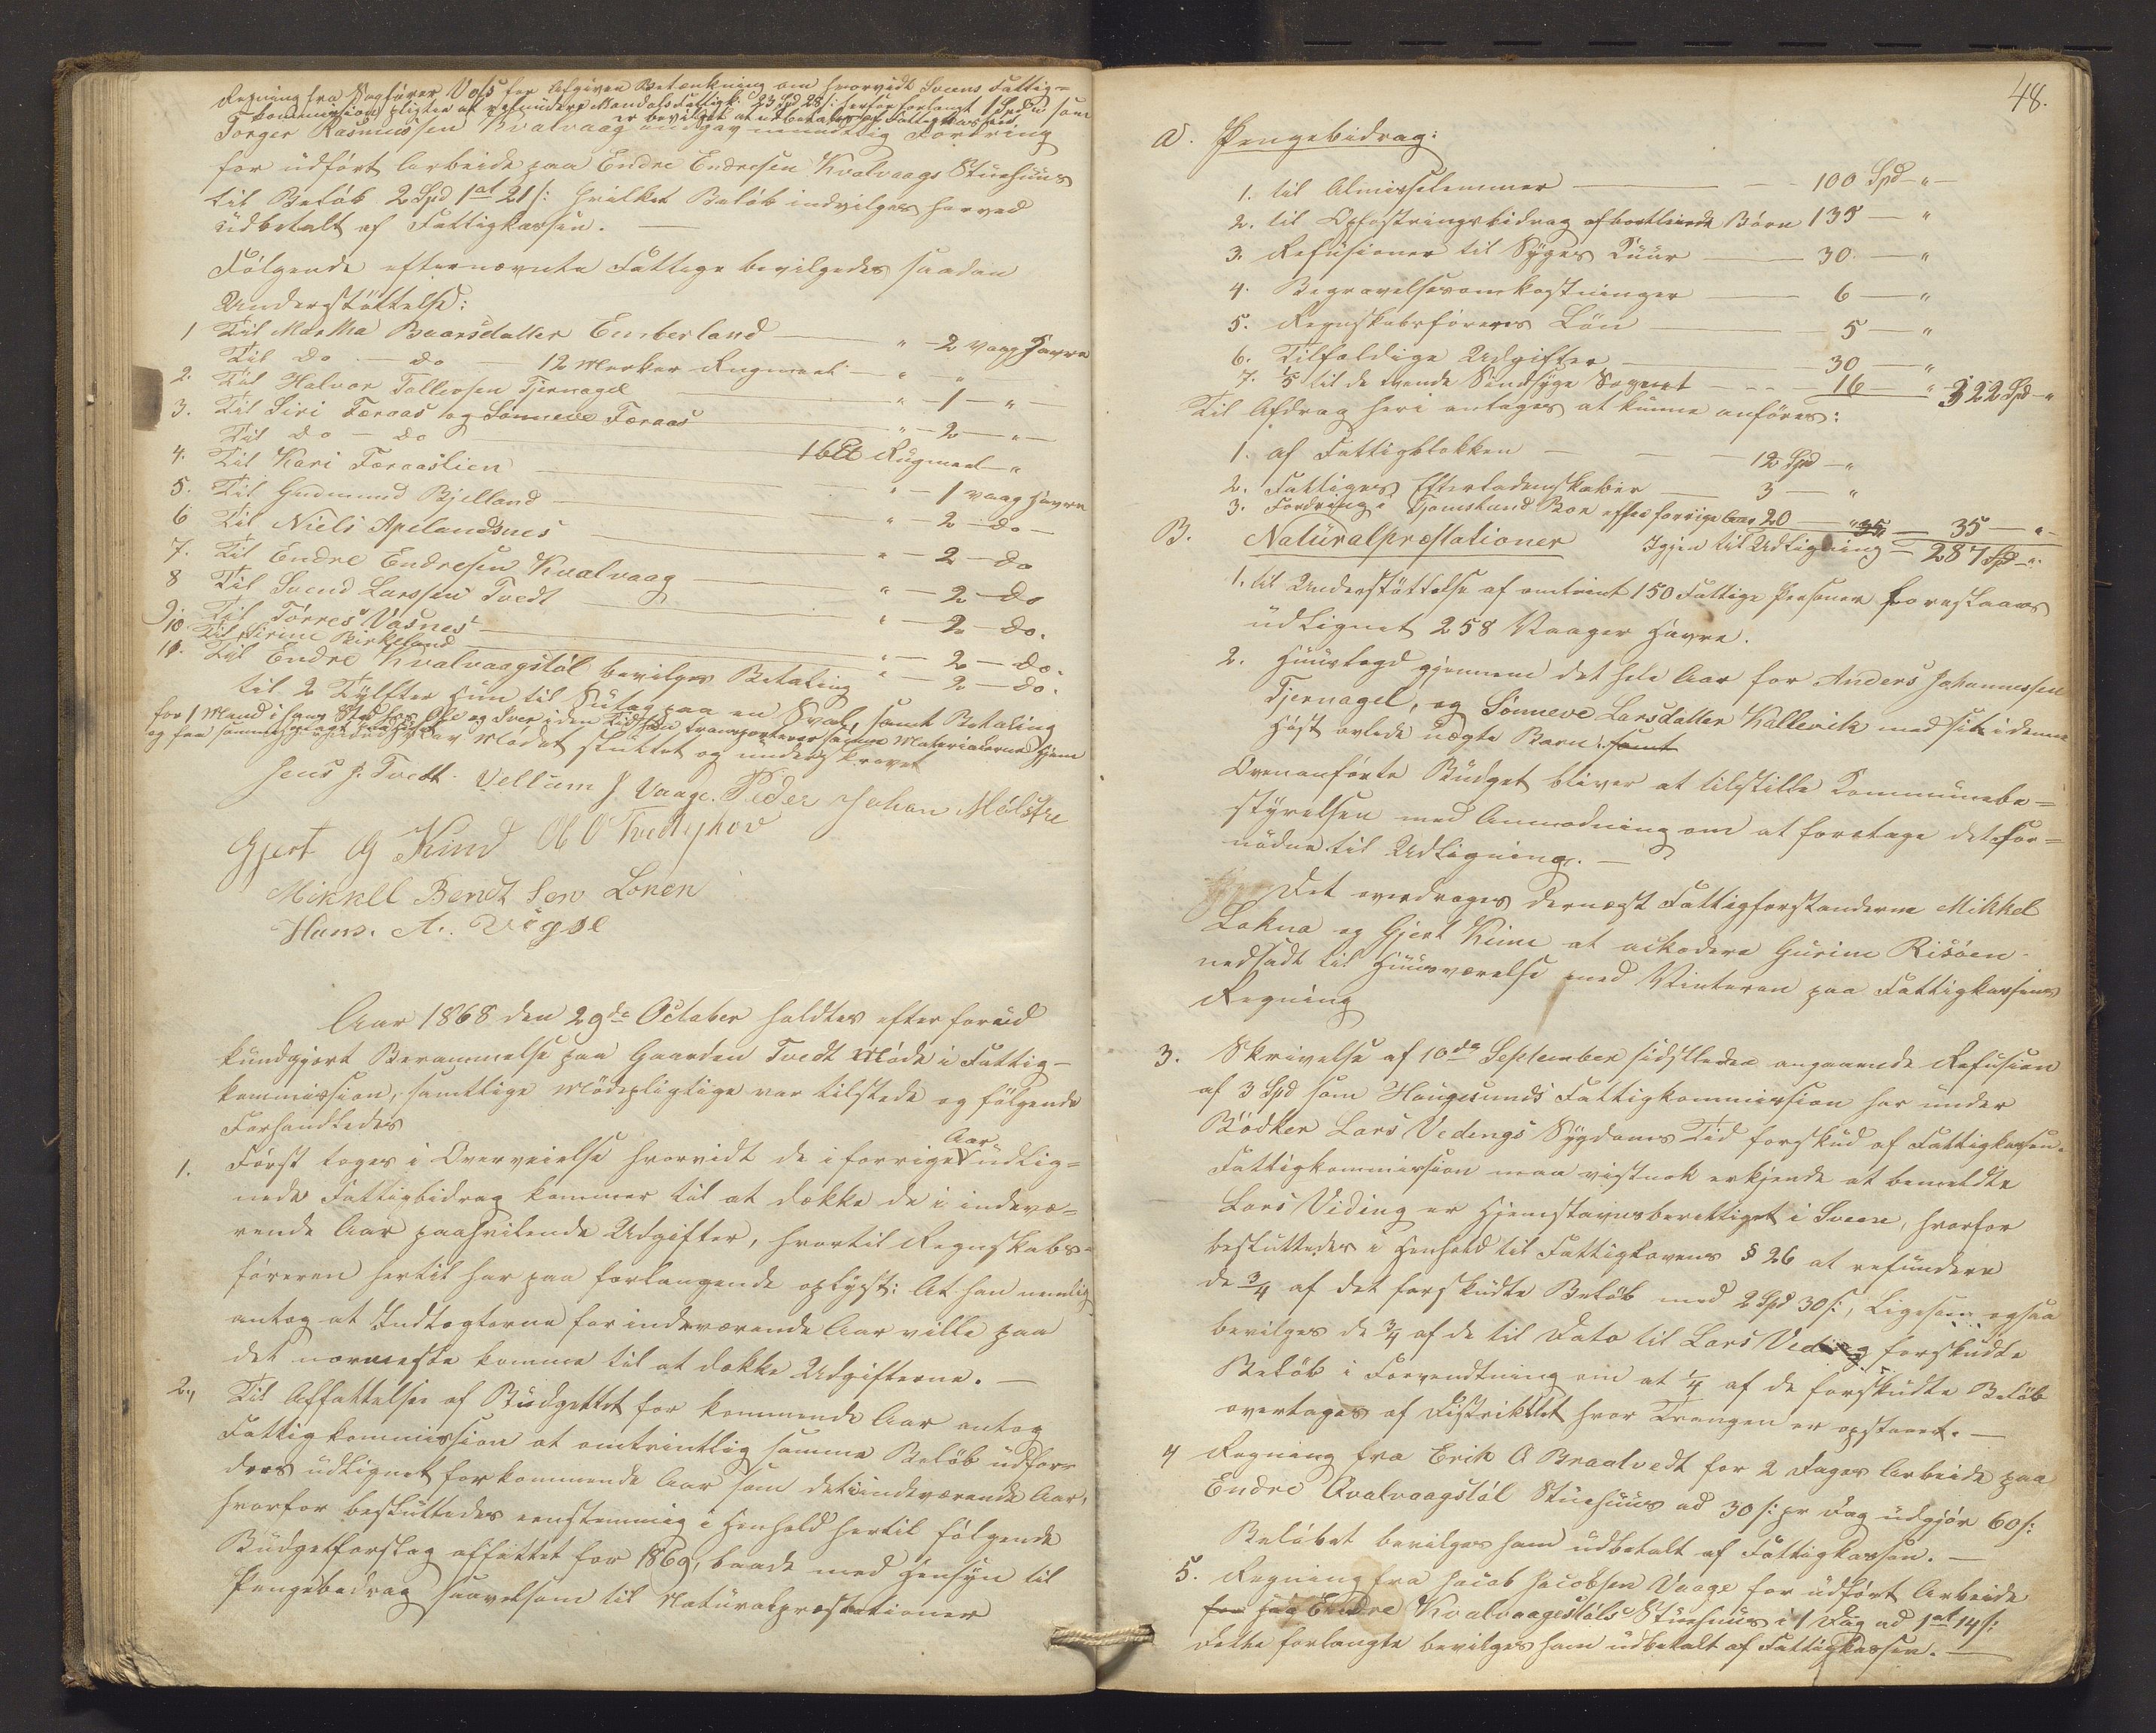 Regning fra Sagfører Voss for afgiven Betænkning om hvorvidt Sveens Fattig=
kommission pligter at refundere Mandals Fattigk: 23 Spd 28 s: herfor forlangt 1 Spd som
er bevilget at udbetales af Fattigkassen
Torger Rasmussen Kvalvaag indgav mundtlig Fordring
for udført Arbeide paa Endre Endresen Kvalvaags Stuehuus
til Beløb 2 Spd 1 ort 21 s: hvilket Beløb indvilges herved
udbetalt af Fattigkassen. —
Følgende efternævnte Fattige bevilgedes saadan
Understøttelse:
1 Til Martha Baarsdatter Emberland — " - 2 Vaag Havre
Til do — do — 12 Merker Rugmeel — " — "
2. Til Halvor Tollevsen Tjernagel — " - 1 — "
3. Til Siri Færaas og Sønneve Færaas — " - 2 — "
Til do — do — 16 ℔ Rugmeel — "
4. Til Kari Færaaslien — " - 1 Vaag Havre
5. Til Gudmund Bjelland — " 2 — do —
6 Til Niels Apelandsnes — " - 2 — do
7. Til Endre Endresen Kvalvaag — " - 2 — do
8 Til Svend Larssen Tvedt — " - 2 — do.
9. Til Tørres Våsnes — " - 2 — do.
10 Til Sirine Birkeland — " - 2 — do.
11. Til Endre Kvalvaagstøl bevilges Betaling
til 2 Tylfter Huun til Sutag paa en Sval, samt Betaling
for 1 Mand i hans Sted hos Ole og Iver i den Tid han transporterer samme Materialerne hjem
og faa sammenlagt
Mødet sluttet og underskrevet
Jens J. Tvedt. Vellum J. Vaage. Peder Johan Mølstre
Gjert G Kind Ol O Tvedtykov
Mikkel Bendt Sen Loken
Hans. A. Vigse
Aar 1868 den 29de October holdtes efter forud
kundgjort Berammelse paa Gaarden Tvedt Møde i Fattig-
kommission, samtlige Mødepligtige var tilstede og følgende
Forhandledes
1. Først toges i Overveielse hvorvidt de i forrige Aar udlig=
nede Fattigbidrag kommer til at dække de i indevæ=
rende Aar paahvilende Udgifter, hvortil Regnskabs=
føreren hertil har paa forlangende oplyst: At han nemlig
antog at Indtægterne for indeværende Aar ville paa
det nærmeste komme til at dække Udgifterne. —
2., Til Affattelse af Budgettet for kommende Aar antog
Fattigkommission at omtrintlig samme Beløb udfor=
dres udlignet for kommende Aar som det i indeværende Aar,
hvorfor besluttedes eenstemmig i Henhold hertil følgende
Budgetforslag affattet for 1869, baade med Hensyn til
Pengebidrag saavelsom til Naturalpræstationer
48.
A. Pengebidrag:
1. til Almisselemmer — — 100 Spd - " -
2. til Opfostringsbidrag af bortliende Børn 135 — "
3. Refusioner til Syges Kuur — 30. — "
4. Begravelsesomkostninger — 6 — "
5. Regnskabsførerens Løn — 5 — "
6. Tilfældige Udgifter — 30 — "
7. 1/5 til de tvende Sindsyge Sognet — 16 — " 322 Spd - "
Til Afdrag heri antages at kunne anføres:
1. af Fattigblokken — — 12 Spd - "
2. Fattiges Efterladenskaber — 3 — "
3. Fordring i Tjomsland Bo efter forrige Aar 20 — " 35 — 35 — " -
Igjen til Udligning — 287 Spd - "
B. Naturalpræstationer
1. til Understøttelse af omtrent 150 Fattige Personer foreslaaes
udlignet 258 Vaager Havre.
2. Huuslægd gjennem det hele Aar for Anders Johannessen
Tjernagel, og Sønneve Larsdatter Kallevik med sit i denne
Høst avlede uægte Barn. samt
Ovenanførte Budget bliver at tilstille Kommunebe=
styrelsen med Anmodning om at foretage det for=
nødne til Udligning. —
Det overdroges dernæst Fattigforstanderne Mikkel
Lokna og Gjert Kinn at ackodere Gurine Risøen
nedsadt til Huusværelse ved Vinteren paa Fattigkassens
Regning
3. Skrivelse af 10de September sidstleden angaaende Refusion
af 3 Spd som Haugesunds Fattigkommission har under
Bødker Lars Vedings Sygdoms Tid forskud af Fattigkassen.
Fattigkommission maa vistnok erkjende at bemeldte
Lars Viding er Hjemstavnsberettiget i Sveen, hvorfor
besluttedes i Henhold til Fattiglovens § 26 at refundere
de 3/4 af det forskudte Beløb med 2 Spd 30 s:, Ligesom ogsaa
bevilges de 3/4 af de til Dato til Lars Veding forskudte
Beløb i Forvendtning om at 1/4 af de forskudte Beløb
overtages af Distriktet hvor Trangen er opstaaet. —
4 Regning fra Erik A Braatvedt for 2 Dages Arbeide paa
Endre Qvalvaagstøl Stuehuus ad 30 s: pr Dag udgjør 60 s:
Beløbet bevilges ham udbetalt af Fattigkassen. —
5. Regning fra Jacob Jacobsen Vaage for udført Arbeide
for paa Endre Kvalvaagestøls Stuehuus i 1 Dag ad 1 ort 14 s:
dette forlangte bevilges ham udbetalt af Fattigkassen. —